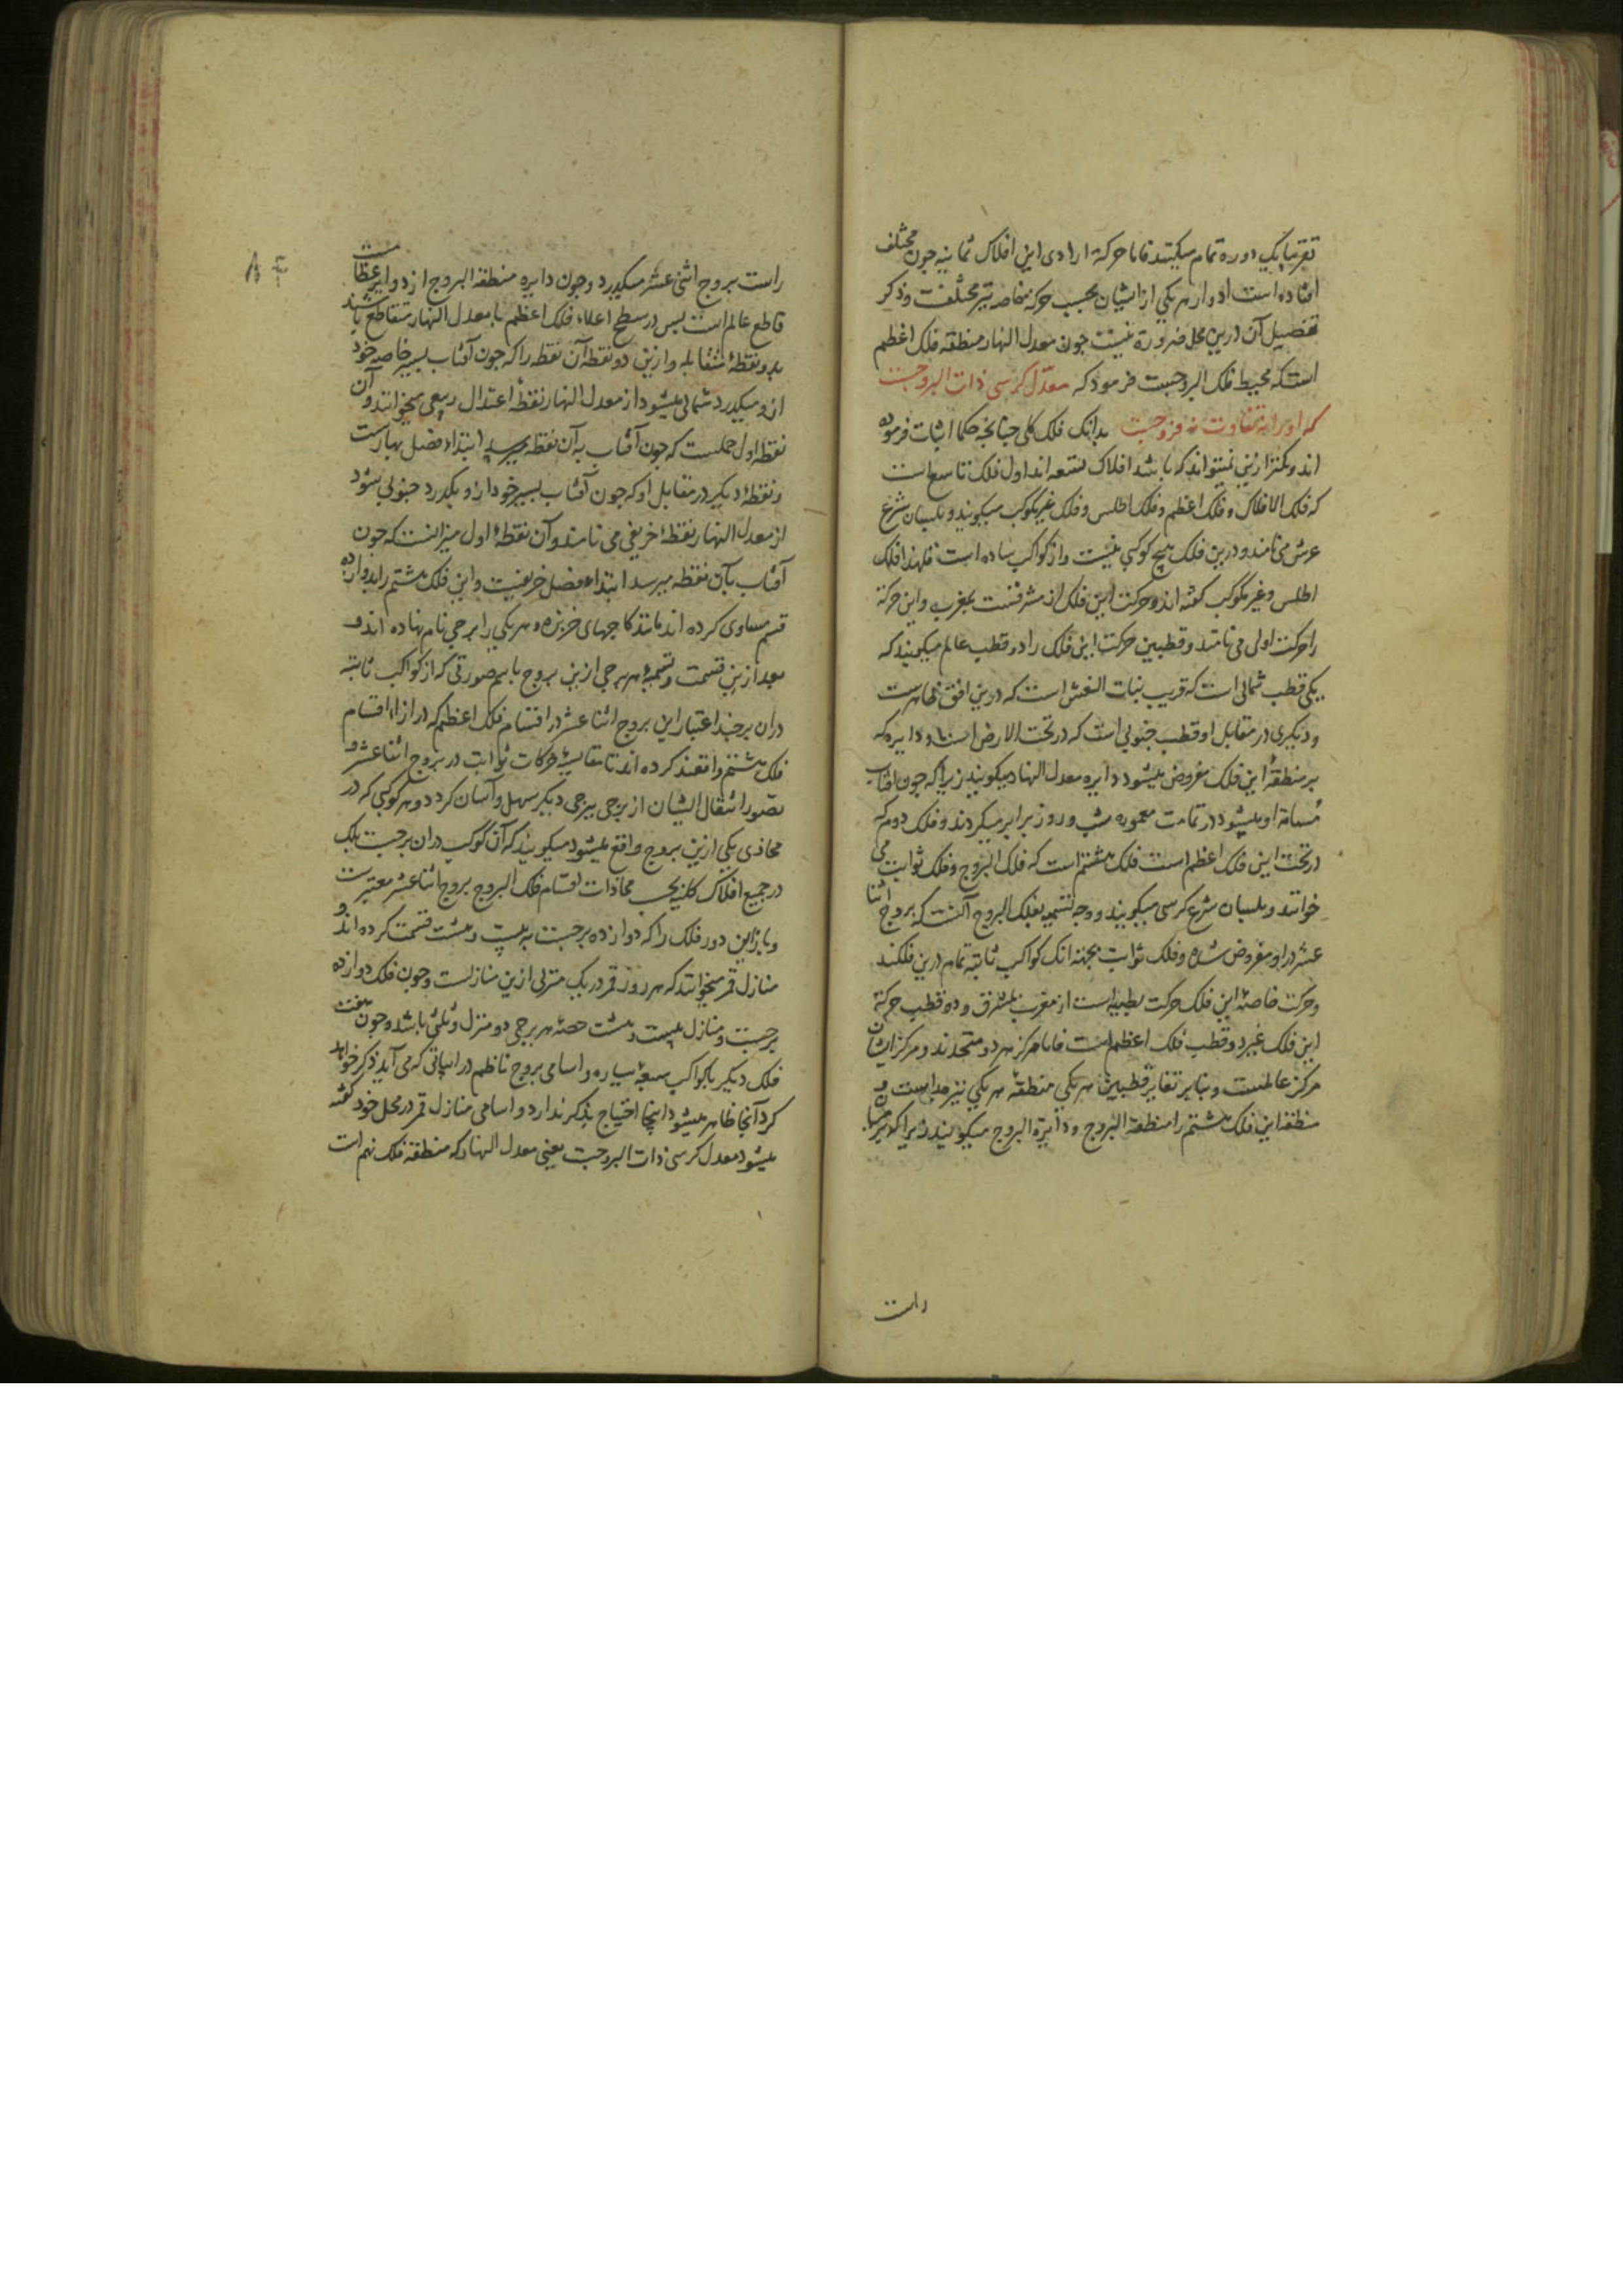 تقریبا یک دوره تمام میکنند فاما حرکة ارادی این افلاک ثمانیه چون مختلف
افتاده است ادوار هر یکی از ایشان بحسب حرکة خاصه نیز مختلفست و ذکر
تفصیل آن درین محل ضرورة نیست چون معدل النهار منطقه فلک اعظم
است که محیط فلک البروجست فرمود که معدل کرسی ذات البروجست
که اورا نه تفاوت نه فروجست بدانک فلک کلی چنانچه حکما اثبات فرموده
اند و کمتر ازین نمیتواند که باشد افلاک تسعه اند اول فلک تاسع است
که فلک الافلاک و فلک اعظم و فلک اطلس و فلک غیر مکوکب میگویند و بلسان شرع
عرش می نامند و درین فلک هیچ کوکبی نیست و از کواکب ساده است فلهذا فلک
اطلس و غیر مکوکب گفته اند و حرکت این فلک از مشرقست بمغرب و این حرکة
را حرکت اولی می نامند و قطبین حرکت این فلک را دو قطب عالم میگویند که
یکی قطب شمالی است که قریب بنات النعش است که درین افق ظاهرست
و دیگری در مقابل او قطب جنوبی است که در تحت الارض است و دایره که
بر منطقهٔ این فلک مفروض میشود دایره معدل النهار میگویند زیرا که چون افتاب
مسامة او میشود در تمامت معموره شب و روز برابر میگردند و فلک دوم که
در تحت این فلک اعظم است فلک هشتم است که فلک البروج و فلک ثوابت می
خوانند و بلسان شرع کرسی میگویند و وجه تسمیه بفلک البروج آنست که بروج اثنا
عشر در او مفروض شده و فلک ثوابت بجهة انک کواکب ثابته تمام درین فلکند
و حرکت خاصهٔ این فلک حرکت بطییه است از مغرب بمشرق و دو قطب حرکة
این فلک غیر دو قطب فلک اعظم است فاما مرکز هر دو متحدند و مرکز ایشان
مرکز عالمست و بنابر تغایر قطبین هر یکی منطقهٔ هر یکی نیز جداست و
منطقه این فلک هشتم را منطقة البروج و دایرة البروج میگویند زیرا که بر میان
راست
راست بروج اثنی عشر میگذرد و چون دایره منطقة البروج از دوایر عظامست
قاطع عالم است پس در سطح اعلاء فلک اعظم با معدل النهار متقاطع باشند
بدو نقطهٔ متقابله و ازین دو نقطه آن نقطه را که چون آفتاب بسیر خاصه خود
ازو میگذرد شمالی میشود از معدل النهار نقطهٔ اعتدال ربیعی میخوانند و آن
نقطه اول حملست که چون آفتاب به آن نقطه میرسد ابتداء فصل بهارست
و نقطهٔ دیگر در مقابل او که چون آفتاب بسیر خود ازو بگذرد جنوبی شود
از معدل النهار نقطهٔ خریفی می نامند و آن نقطهٔ اول میزانست که چون
آفتاب بآن نقطه میرسد ابتداء فصل خریفست و این فلک هشتم را بدوازده
قسم مساوی کرده اند مانند کاجهای خربزه و هر یکی را برجی نام نهاده اند و
بعد ازین قسمت و تسمیه هر برجی ازین بروج باسم صورتی که از کواکب ثابته
دران برجند اعتبار این بروج اثنا عشر در اقسام فلک اعظم که در ازاء اقسام
فلک هشتم واقعند کرده اند تا مقایسهٔ حرکات ثوابت در بروج اثنا عشر و
تصور انتقال ایشان از برجی ببرجی دیگر سهل و آسان کردد و هر کوکبی که در
محاذی یکی ازین بروج واقع میشود میگویند که آن کوکب دران برجست بلک
در جمیع افلاک کلیه محاذات اقسام فلک البروج بروج اثنا عشر معتبرست
و باز این دور فلک را که دوازده برجست به بیست و هشت قسمت کرده اند و
منازل قمر میخوانند که هر روز قمر در یک منزلی ازین منازلست و چون فلک دوازده
برجست و منازل بیست و هشت حصهٔ هر برجی دو منزل و ثلثی باشد و چون هفت
فلک دیگر با کواکب سبعهٔ سیاره و اسامی بروج ناظم در ابیاتی که می آید ذکر خواهد
کرد آنجا ظاهر میشود اینجا احتیاج بذکر ندارد و اسامی منازل قمر در محل خود گفته
میشود معدل کرسی ذات البروجست یعنی معدل النهار که منطقهٔ فلک نهم است